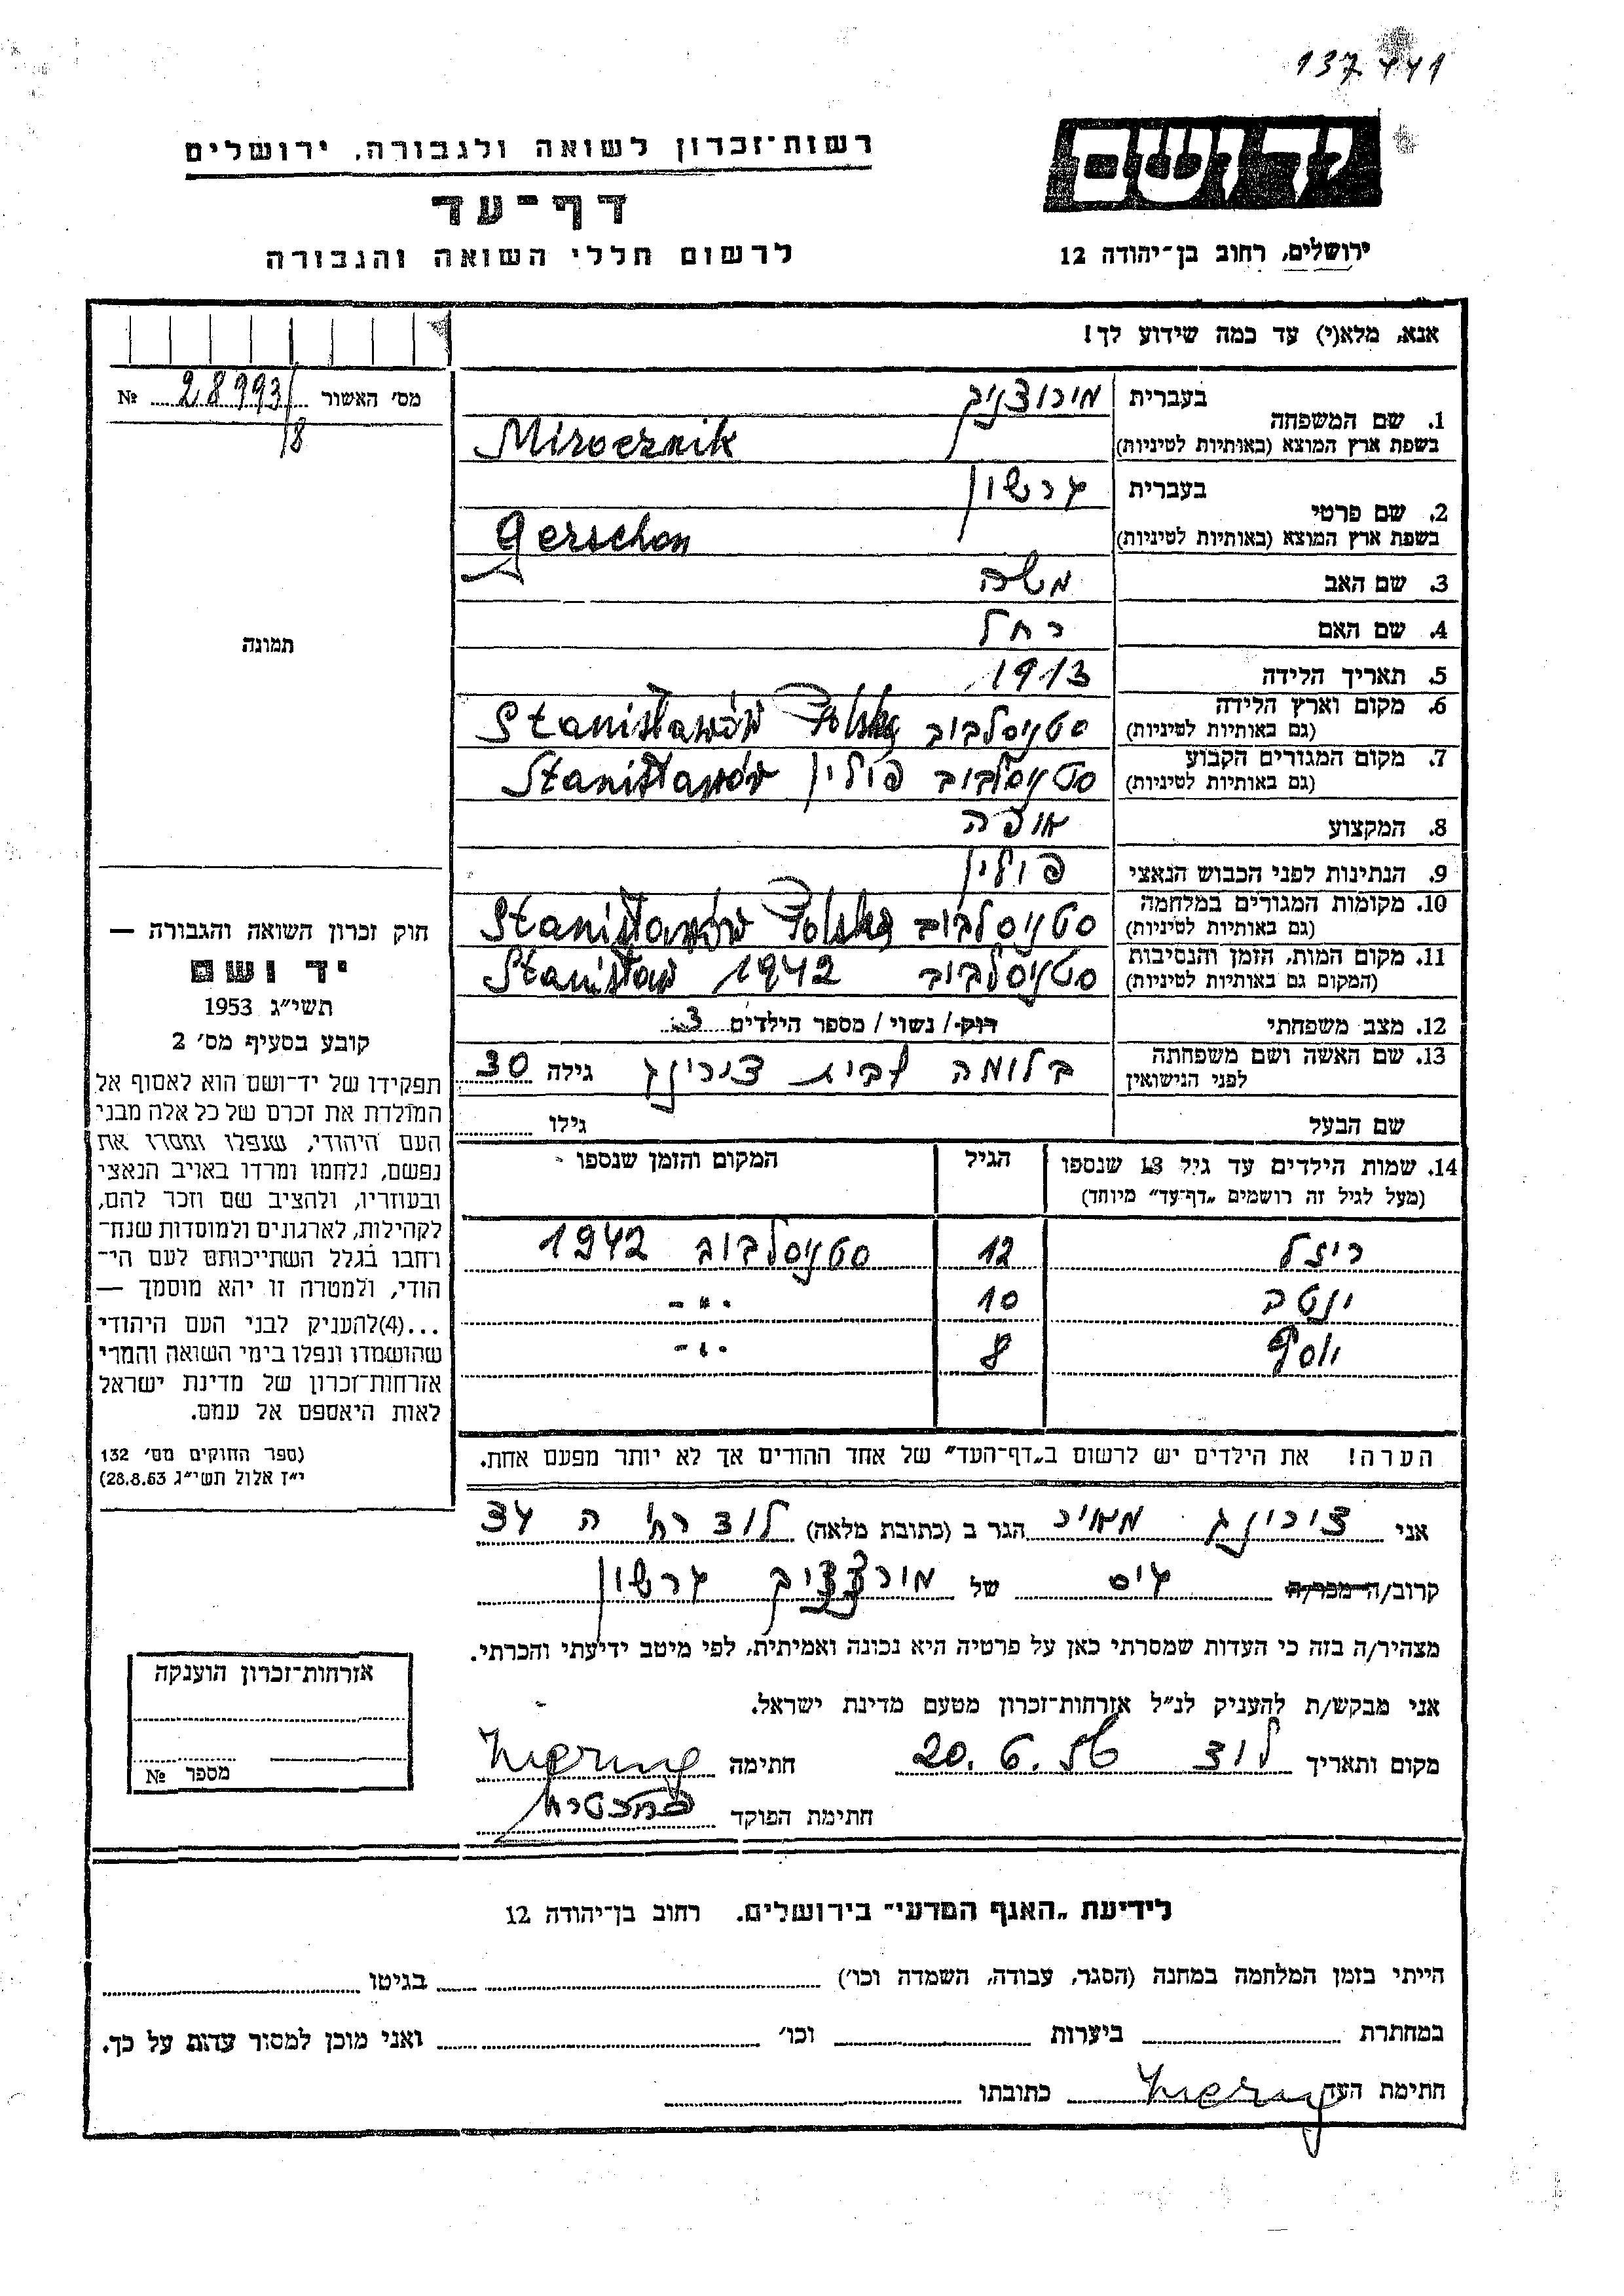 137441
יד ושם
ירושלים, רחוב בן־יהודה 12
רשות־זכרון לשואה ולגבורה, ירושלים
דף־עד
לרשום חללי השואה והגבורה
אנא, מלא(י) עד כמה שידוע לך!
מס' האשור 28993/ №
/8
1. שם המשפחה בעברית מירוצניק
בשפת ארץ המוצא (באותיות לטיניות) Miroeznik
2. שם פרטי בעברית גרשון
בשפת ארץ המוצא (באותיות לטיניות) Gerschon
3. שם האב משה
4. שם האם רחל
5. תאריך הלידה 1913
6. מקום וארץ הלידה (גם באותיות לטיניות) סטניסלבוב Stanisławów Polska
7. מקום המגורים הקבוע (גם באותיות לטיניות) סטניסלבוב פולין Stanisławów
8. המקצוע אופה
9. הנתינות לפני הכבוש הנאצי פולין
10. מקומות המגורים במלחמה (גם באותיות לטיניות) סטניסלבוב Stanisławów Polska
11. מקום המות, הזמן והנסיבות (המקום גם באותיות לטיניות) סטניסלבוב 1942 Stanisław
12. מצב משפחתי רווק/ נשוי/ מספר הילדים 3
13. שם האשה ושם משפחתה לפני הנישואין בלומה לבית צירינג גילה 30
שם הבעל גילו
14. שמות הילדים עד גיל 18 שנספו (מעל לגיל זה רושמים „דף־עד" מיוחד) הגיל המקום והזמן שנספו
ריזל 12 סטניסלבוב 1942
ינטב 10 -"-
יוסף 8 -"-
הערה! את הילדים יש לרשום ב„דף־העד" של אחד ההורים אך לא יותר מפעם אחת.
תמונה
חוק זכרון השואה והגבורה —
יד ושם
תשי"ג 1953
קובע בסעיף מס' 2
תפקידו של יד־ושם הוא לאסוף אל
המולדת את זכרם של כל אלה מבני
העם היהודי, שנפלו ומסרו את
נפשם, נלחמו ומרדו באויב הנאצי
ובעוזריו, ולהציב שם וזכר להם,
לקהילות, לארגונים ולמוסדות שנח־
רחבו בגלל השתייכותם לעם הי־
הודי, ולמטרה זו יהא מוסמך —
...(4)להעניק לבני העם היהודי
שהושמדו ונפלו בימי השואה והמרי
אזרחות־זכרון של מדינת ישראל
לאות היאספם אל עמם.
(ספר החוקים מס' 132
י"ז אלול תשי"ג 28.8.53)
אני צירינג מאיר הגר ב (כתובת מלאה) לוד רח' ה 34
קרוב/ה מכר/ה גיס של מירצניק גרשון
מצהיר/ה בזה כי העדות שמסרתי כאן על פרטיה היא נכונה ואמיתית, לפי מיטב ידיעתי והכרתי.
אני מבקש/ת להעניק לנ"ל אזרחות־זכרון מטעם מדינת ישראל.
מקום ותאריך לוד 20.6.56 חתימה
חתימת הפוקד
אזרחות־זכרון הוענקה
מספר №
לידיעת „האגף המדעי" בירושלים. רחוב בן־יהודה 12
הייתי בזמן המלחמה במחנה (הסגר, עבודה, השמדה וכו') בגיטו
במחתרת ביערות וכו' ואני מוכן למסור עדות על כך.
חתימת העד כתובתו